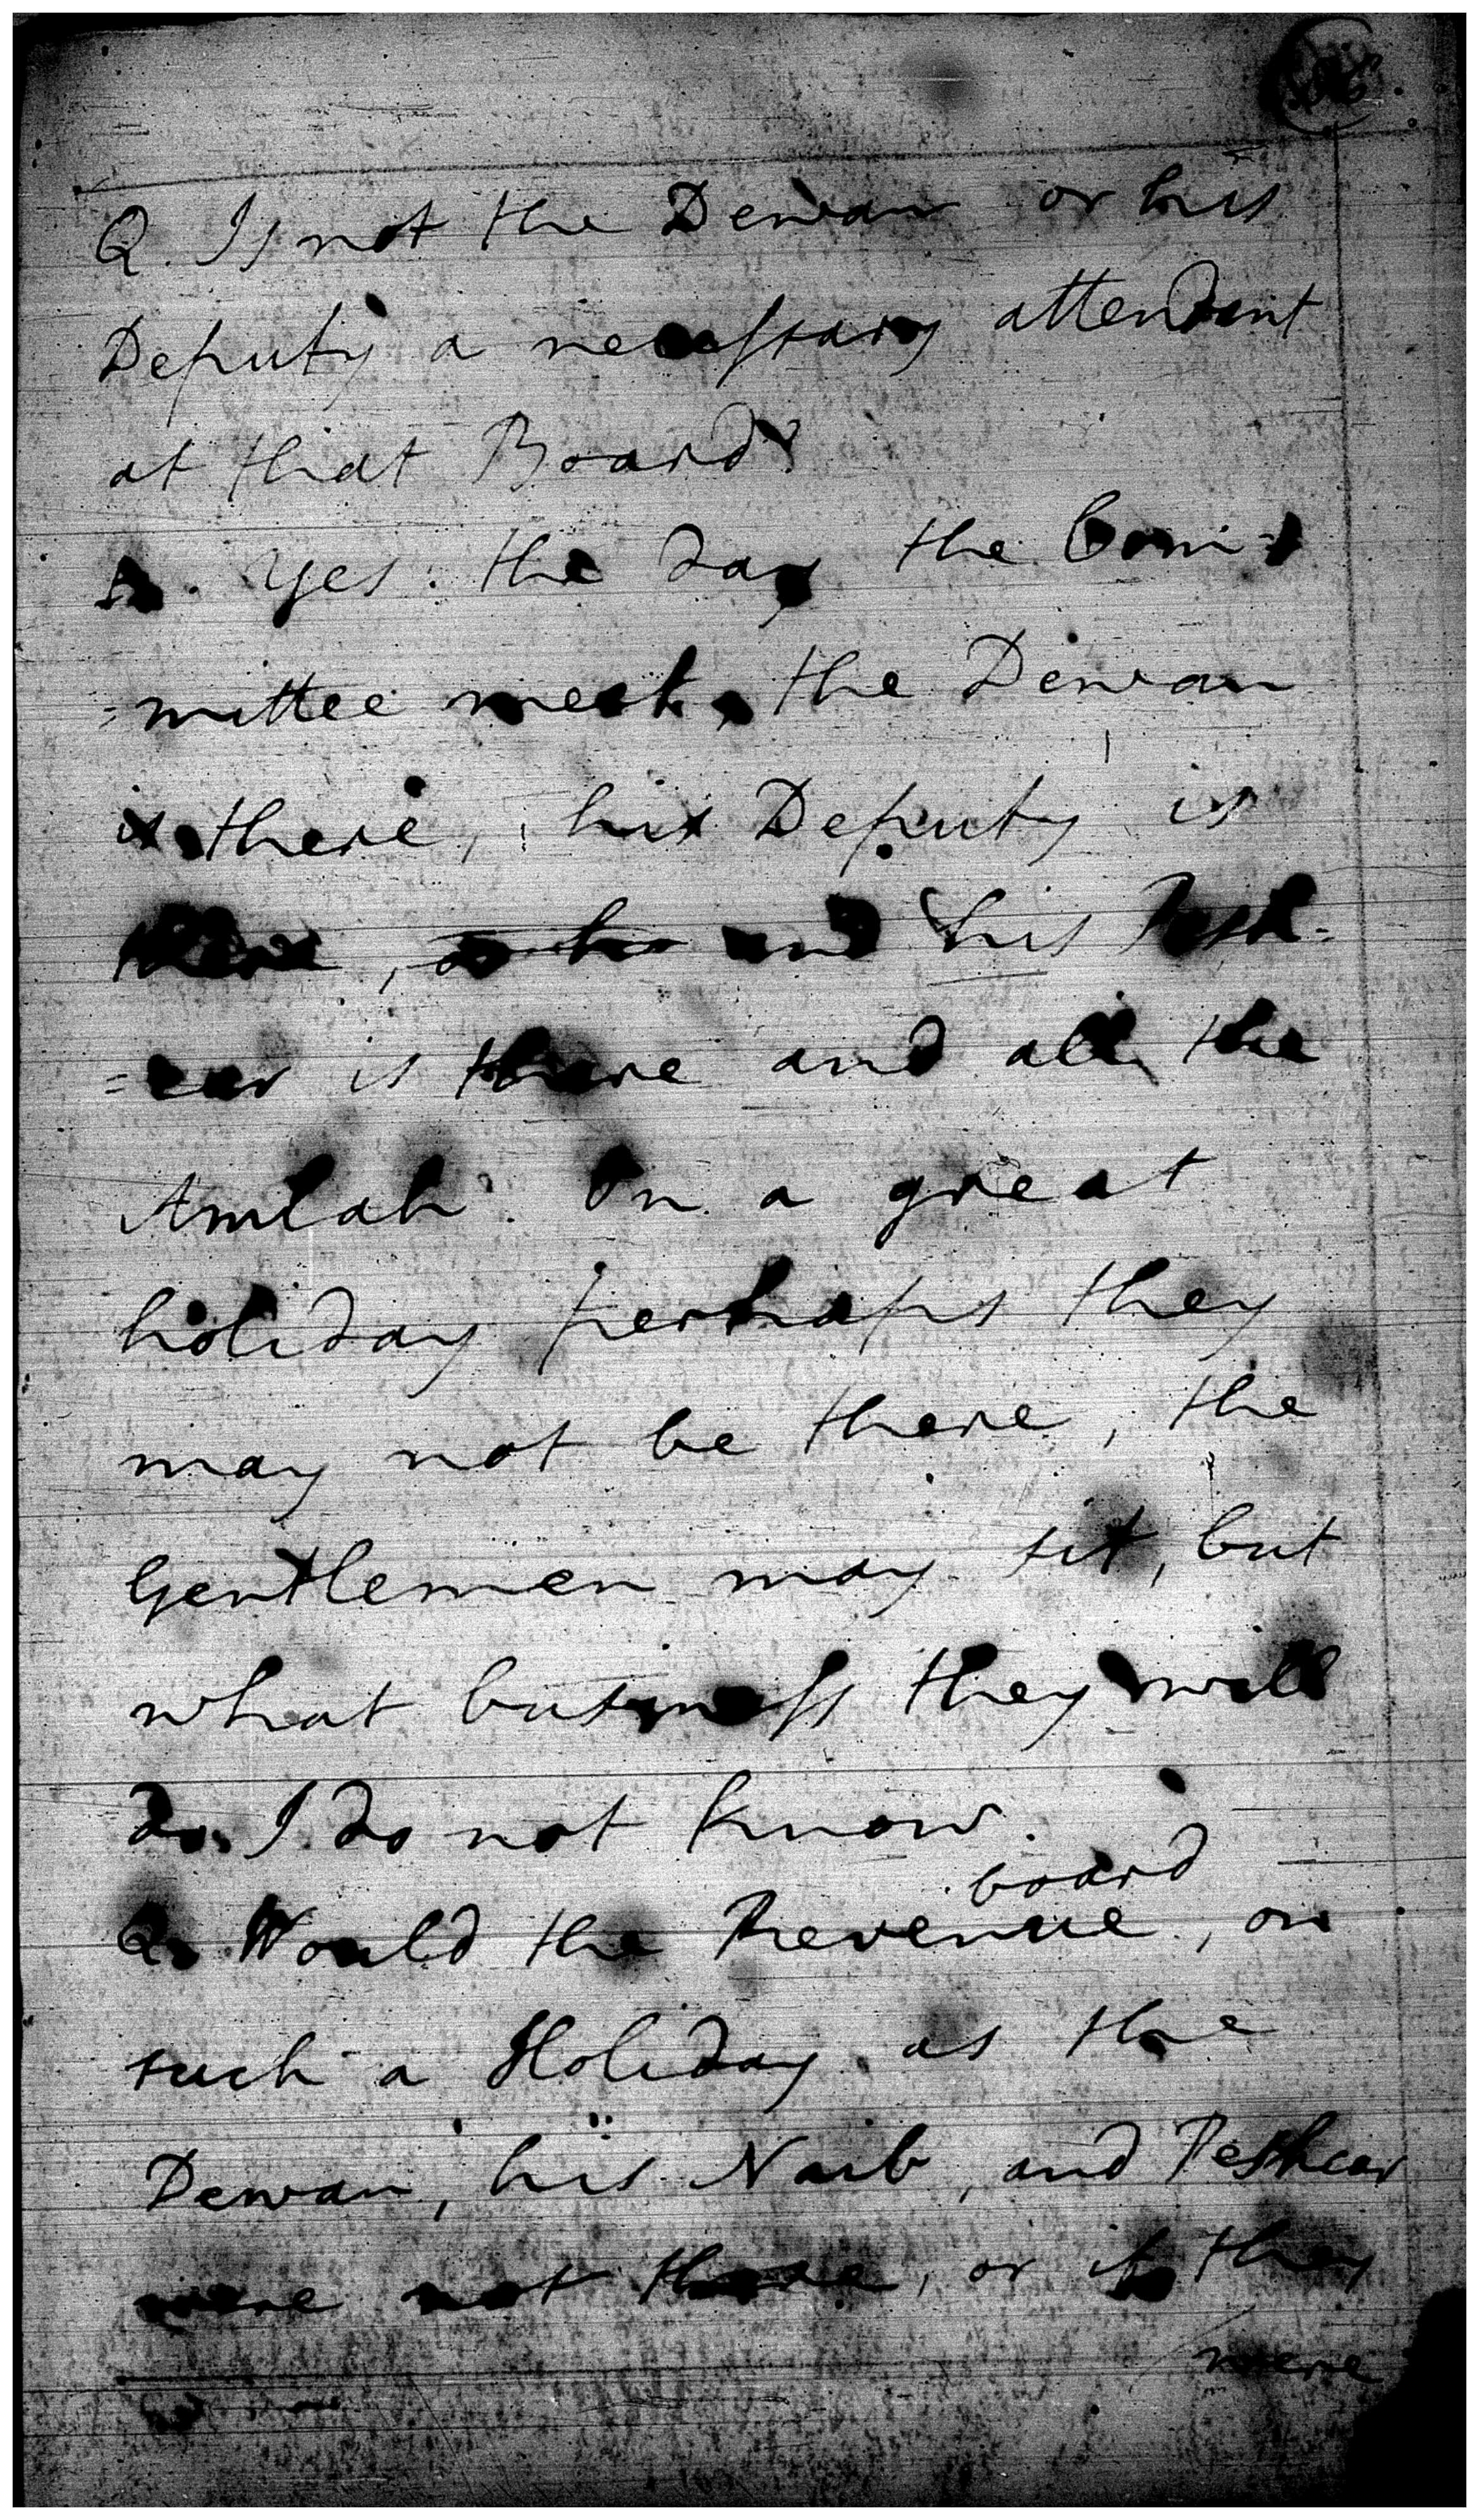 Q. Is not the Dewan or his
Deputy a necessary attendant
at that Board?
A. Yes. the day the Com-
=mittee meets, the Dewan
is there, his Deputy is
there, and his Pesh-
=car is there and all the
Amlah. On a great
holiday perhaps they
may not be there, the
Gentlemen may sit, but
what business they will
do. I do not know.
board
Q. Would the Revenue, on
such a Holiday as the
Dewan, his Naib, and Peshcar
were not there, or if they
were